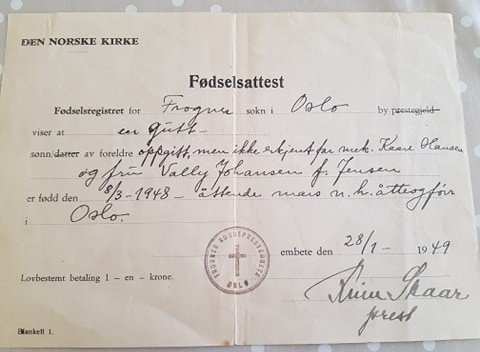 DEN NORSKE KIRKE
Fødselsattest
Fødselsregistret for Frogner sokn i Oslo by prestegjeld
viser at en gutt
sønn/datter av foreldre oppgitt, men ikke erkjent far mek. Kaare Hansen
og fru Vally Johansen f. Jensen
er født den 8/3-1948 - åttende mars n.h. åtteogførr
i Oslo.
embete den 28/1 - 1949
FROGNER SOGNEPRESTEMBETE
OSLO
Lovbestemt betaling 1 - en - krone.
Skaar
prest
Blankett 1.